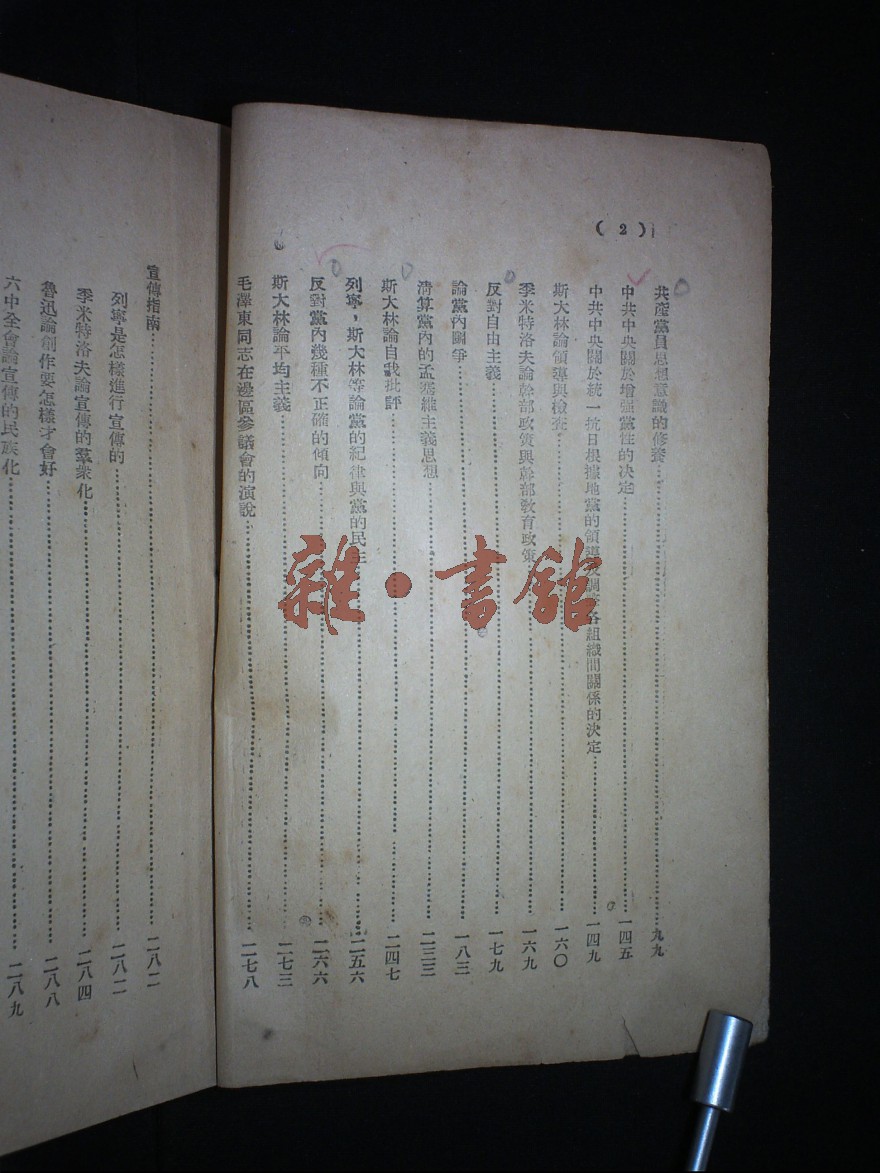 (2)
共產黨員思想意識的修養……九九
中共中央關於增强黨性的决定……一四五
中共中央關於統一抗日根據地黨的領導及調整各組織間關係的決定……一四九
斯大林論領導與檢查……一六〇
季米特洛夫論幹部政策與幹部敎育政策……一六九
反對自由主義……一七九
論黨內鬭爭……一八三
清算黨內的孟塞維主義思想……二三三
斯大林論自我批評……二四七
列寧，斯大林等論黨的紀律與黨的民主……二五六
反對黨內幾種不正確的傾向……二六六
斯大林論平均主義……二七三
毛澤東同志在邊區參議會的演說……二七八
宣傳指南……二八二
列寧是怎樣進行宣傳的……二八二
季米特洛夫論宣傳的羣衆化……二八四
魯迅論創作要怎樣才會好……二八八
六中全會論宣傳的民族化……二八九
雜·書館